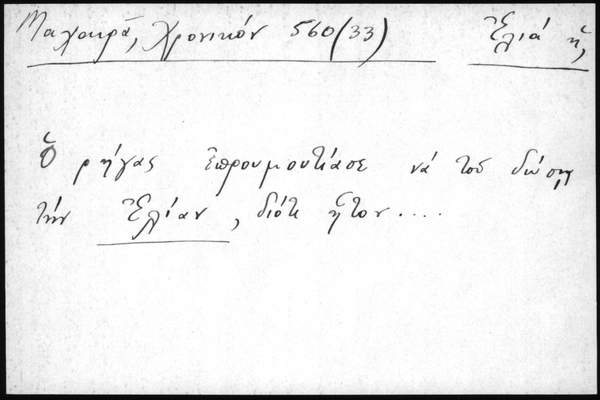 Μαχαιρᾶ, Χρονικόν 560(33) Ἐλιά ἡ,
Ὁ ρήγας ἐπρουμουτίασε νά τοῦ δώσῃ
τήν Ἐλίαν, διότι ἦτον....